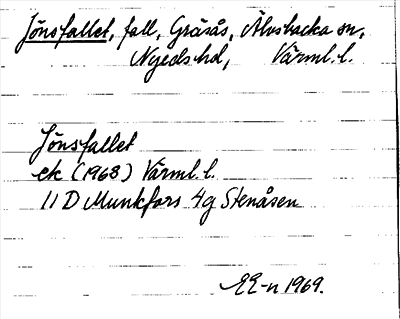 Jönsfallet, fall, Gräsås, Älvsbacka sn,
Nyeds hd, Värml. l.
Jönsfallet
ek (1968) Värml. l.
11 D Munkfors 4g Stenåsen
EE-n 1969.